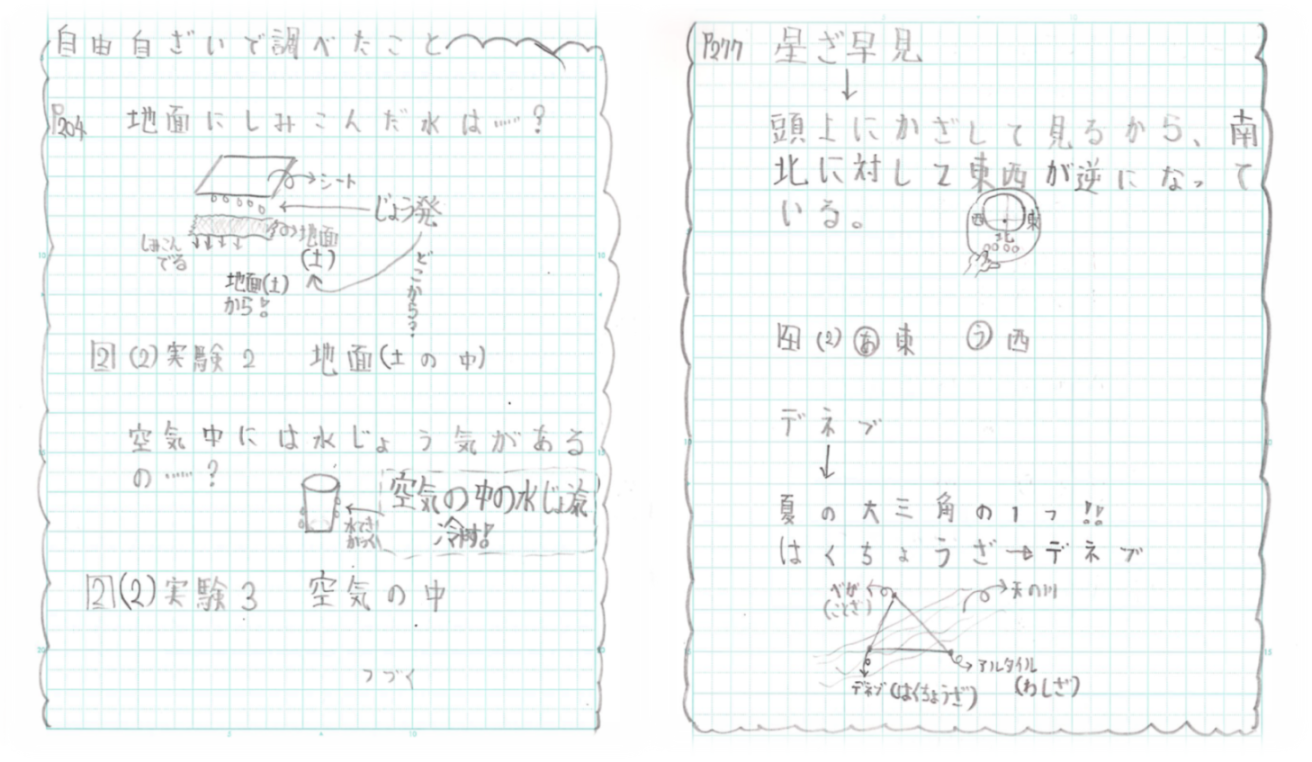 自由自ざいで調べたこと
P204 地面にしみこんだ水は……?
シート
じょう発
地面
(土)
しみこん
でる
地面(土)
から!
どこから?
2 (2)実験2 地面(土の中)
空気中には水じょう気がある
の……?
空気の中の水じょう気
水てき
がつく
2 (2)実験3 空気の中
つづく
P277 星ざ早見
頭上にかざして見るから、南
北に対して東西が逆になって
いる。
西 東
北
4 (2) あ 東 う 西
デネブ
夏の大三角の1つ!!
はくちょうざ→デネブ
べガ
(ことざ)
天の川
アルタイル
(わしざ)
デネブ(はくちょうざ)